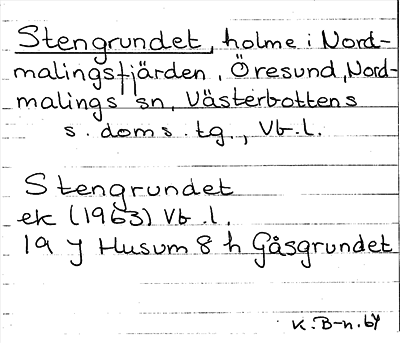 Stengrundet, holme i Nord-
malingsfjärden, Öresund, Nord-
malings sn, Västerbottens
s. doms. tg., Vb.l.
Stengrundet
ek (1963) Vb.l.
19 J Husum 8 h Gåsgrundet
K.B-n. 67